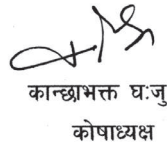 कान्छाभक्त घःजु
कोषाध्यक्ष